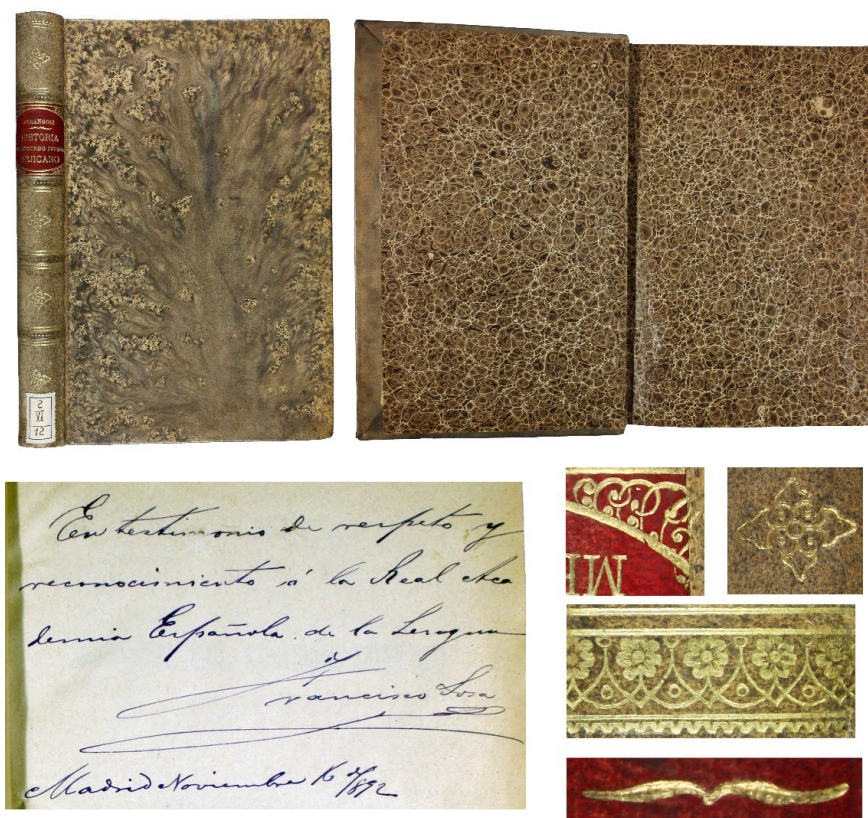 ARRANGOIZ
HISTORIA
SEGUNDO
MEJICANO
2
VI
12
En testimonio de respeto y
reconocimiento á la Real Aca
demia Española de la Lengua
Francisco Sosa
Madrid Noviembre 16 de 1892
ME